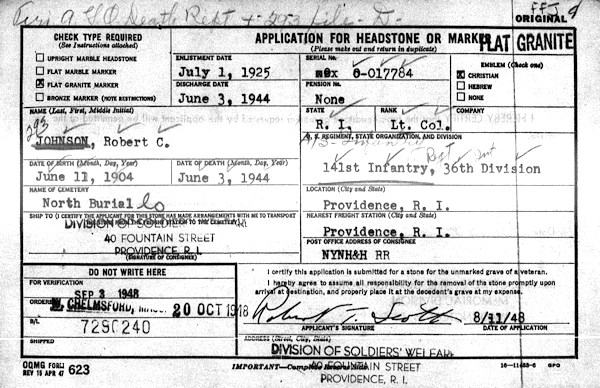 ORIGINAL
CHECK TYPE REQUIRED
(See Instructions attached)
UPRIGHT MARBLE HEADSTONE
FLAT MARBLE MARKER
FLAT GRANITE MARKER
BRONZE MARKER (NOTE RESTRICTIONS)
APPLICATION FOR HEADSTONE OR MARKER
(Please make out and return in duplicate)
FLAT GRANITE
ENLISTMENT DATE
July 1, 1925
DISCHARGE DATE
June 3, 1944
SERIAL No.
O-017784
PENSION No.
None
EMBLEM (Check one)
CHRISTIAN
HEBREW
NONE
NAME (Last, First, Middle Initial)
293
JOHNSON, Robert C.
STATE
R. I.
RANK
Lt. Col.
COMPANY
U. S. REGIMENT, STATE ORGANIZATION, AND DIVISION
141st Infantry, 36th Division
DATE OF BIRTH (Month, Day, Year)
June 11, 1904
DATE OF DEATH (Month, Day, Year)
June 3, 1944
NAME OF CEMETERY
North Burial
LOCATION (City and State)
Providence, R. I.
SHIP TO (I CERTIFY THE APPLICANT FOR THIS STONE HAS MADE ARRANGEMENTS WITH ME TO TRANSPORT
DIVISION OF SOLDIERS'
40 FOUNTAIN STREET
PROVIDENCE, R. I.
(SIGNATURE OF CONSIGNEE)
NEAREST FREIGHT STATION (City and State)
Providence, R. I.
POST OFFICE ADDRESS OF CONSIGNEE
NYNH&H RR
DO NOT WRITE HERE
FOR VERIFICATION
SEP 3 1948
ORDERED
W. CHELMSFORD,
20 OCT 1948
B/L
7290240
SHIPPED
I certify this application is submitted for a stone for the unmarked grave of a veteran.
I hereby agree to assume all responsibility for the removal of the stone promptly upon
arrival at destination, and properly place it at the decedent's grave at my expense.
Robert T. Scott
8/11/48
APPLICANT'S SIGNATURE
DATE OF APPLICATION
ADDRESS (Street, City, State)
DIVISION OF SOLDIERS' WELFARE
40 FOUNTAIN STREET
PROVIDENCE, R. I.
OQMG FORM
REV 15 APR 47 623
IMPORTANT—
GPO